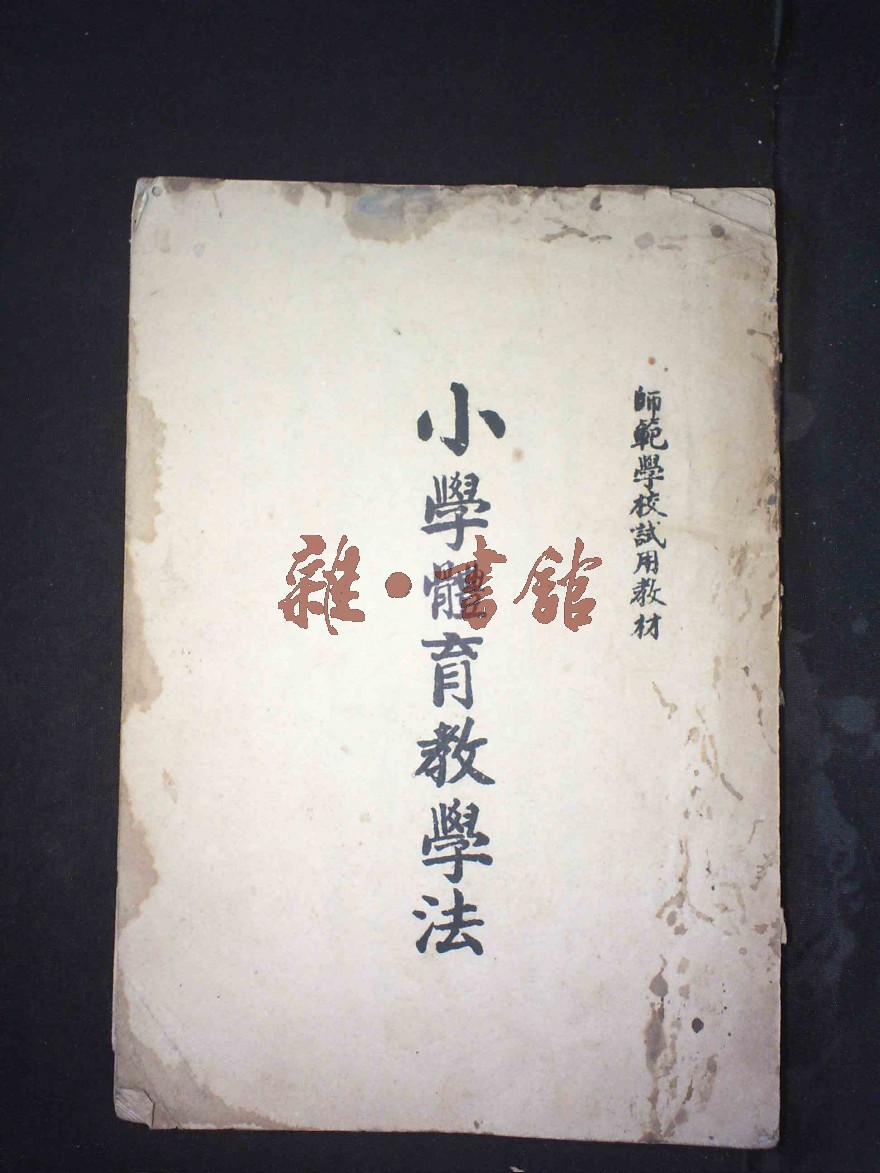 師範學校試用教材
小學體育教學法
雜·書館